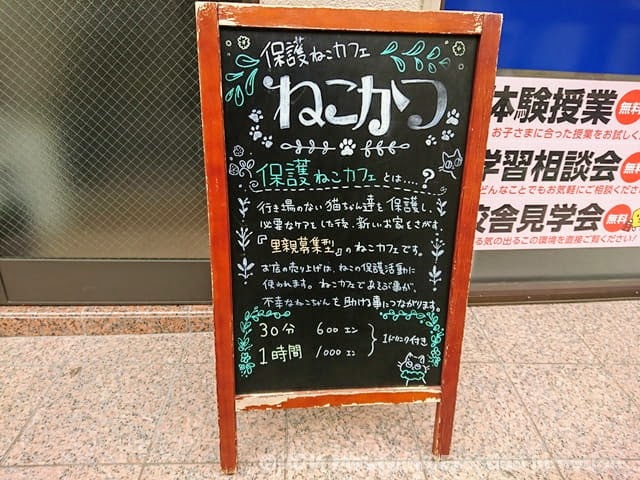 保護ねこカフェ
ねこかつ
保護ねこカフェとは....?
行き場のない猫ちゃん達を保護し、
必要なケアをした後、新しいお家をさがす。
『里親募集型』のねこカフェです。
お店の売り上げは、ねこの保護活動に
使われます。ねこカフェであそぶ事が、
不幸なねこちゃんを助ける事につながります。
30分 600エン
1時間 1000エン
1ドリンク付き
体験授業 無料
お子さまに合った授業をお試しく
学習相談会 無
どんなことでもお気軽にご相談くださ
校舎見学会 無料
る気の出るこの環境を直接ご覧ください!